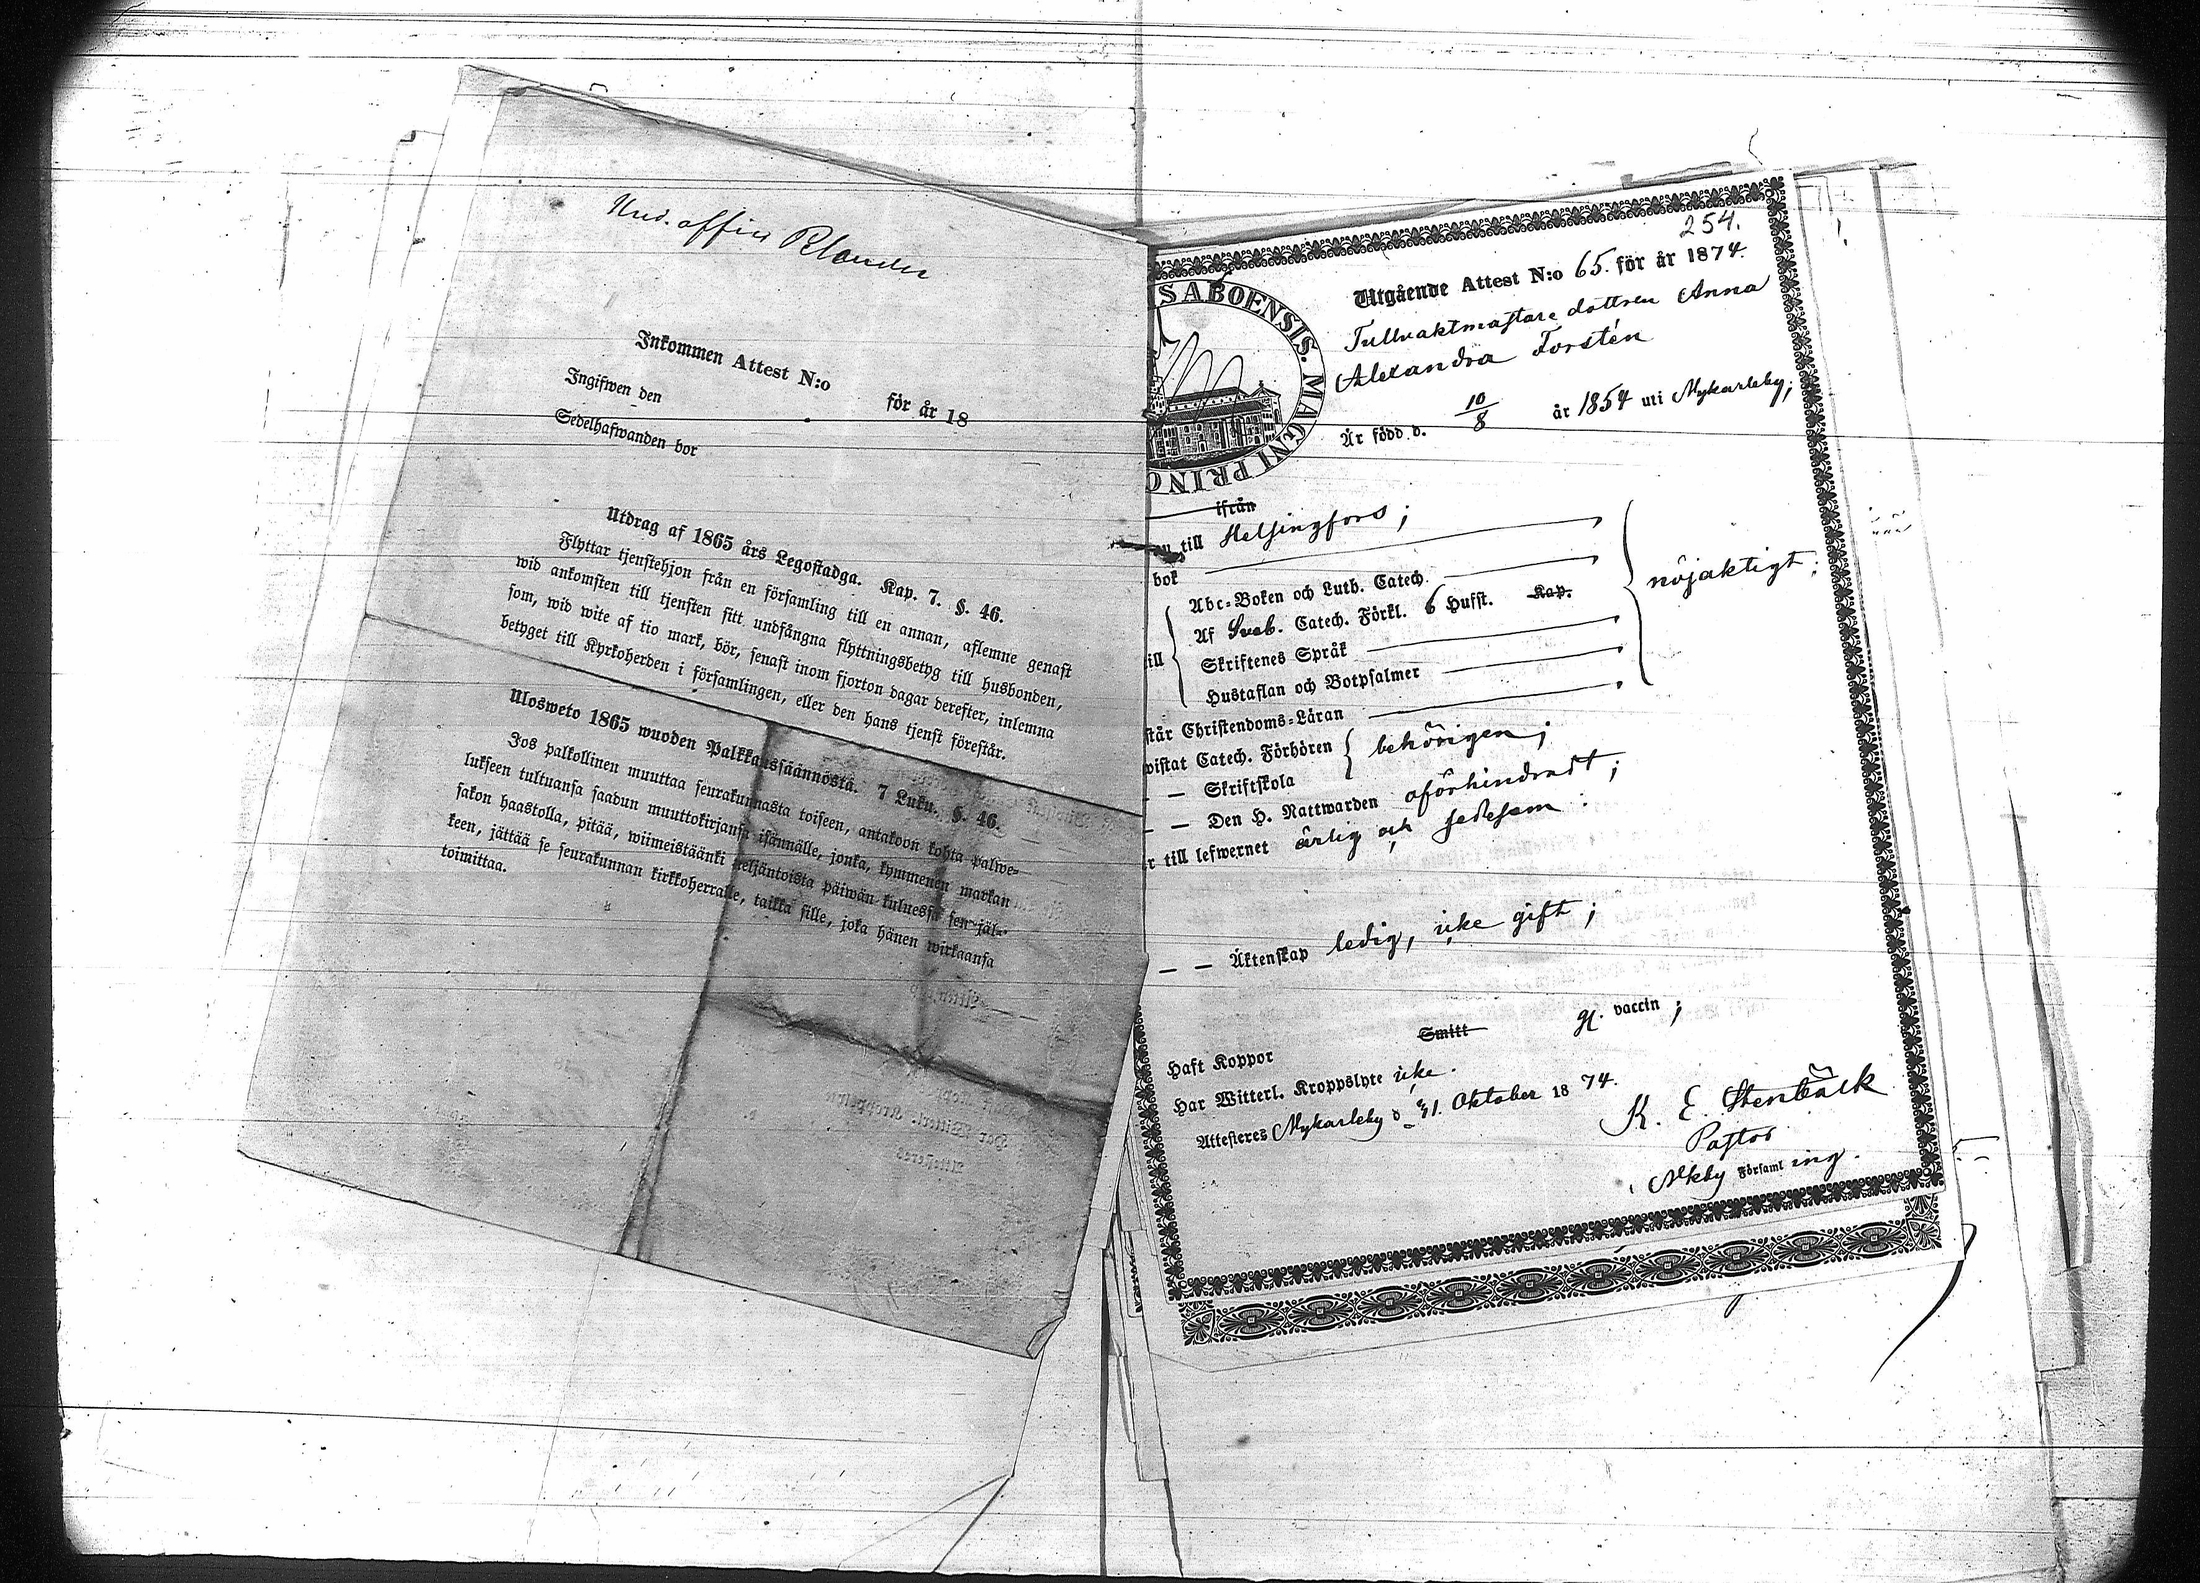 Und.officer Rlander
Inkommen Attest N:o för år 18
Ingifwen den
Sedelhafwanden bor
Utdrag af 1865 års Legostadga. Kap. 7. §. 46.
Flyttar tjenstehjon från en församling till en annan, aflemne genast
wid ankomsten till tjensten sitt undfångna flyttningsbetyg till husbonden,
som, wid wite af tio mark, bör, senast inom fjorton dagar derefter, inlemna
betyget till Kyrkoherden i församlingen, eller den hans tjenst förestår.
Ulosweto 1865 wuoden Palkkaussäännöstä. 7 Luku. §. 46.
Jos palkollinen muuttaa seurakunnasta toiseen, antakoon kohta palwe-
lukseen tultuansa saadun muuttokirjansa isännälle, jonka, kymmenen markan
sakon haastolla, pitää, wiimeistäänki neljäntoista päiwän kuluessa sen jäl-
keen, jättää se seurakunnan kirkkoherralle, taikka sille, joka hänen wirkaansa
toimittaa.
254.
Utgående Attest N:o 65. för år 1874.
Tullvaktmästare dottren Anna
Alexandra Forstén
Är född d. 10/8 år 1854 uti Nykarleby;
SABOENSIS. MAGNI PRINC
ifrån
till Helsingfors;
bok
Abc-Boken och Luth. Catech.
Af Sveb. Catech. Förkl. 6 Hufst. Kap.
ill
Skriftenes Språk
Hustaflan och Botpsalmer
nöjaktigt;
står Christendoms-Läran
wistat Catech. Förhören behörigen;
— — Skriftskola
— — Den H. Nattwarden oförhindradt;
r till lefwernet ärlig och sedesam.
— — Äktenskap ledig, icke gift;
Haft Koppor Smitt vaccin;
Har Witterl. Kroppslyte icke.
Attesteres Nykarleby d 31. Oktober 1874.
K. E. Stenbäck
Pastor
i Nkby Församling.